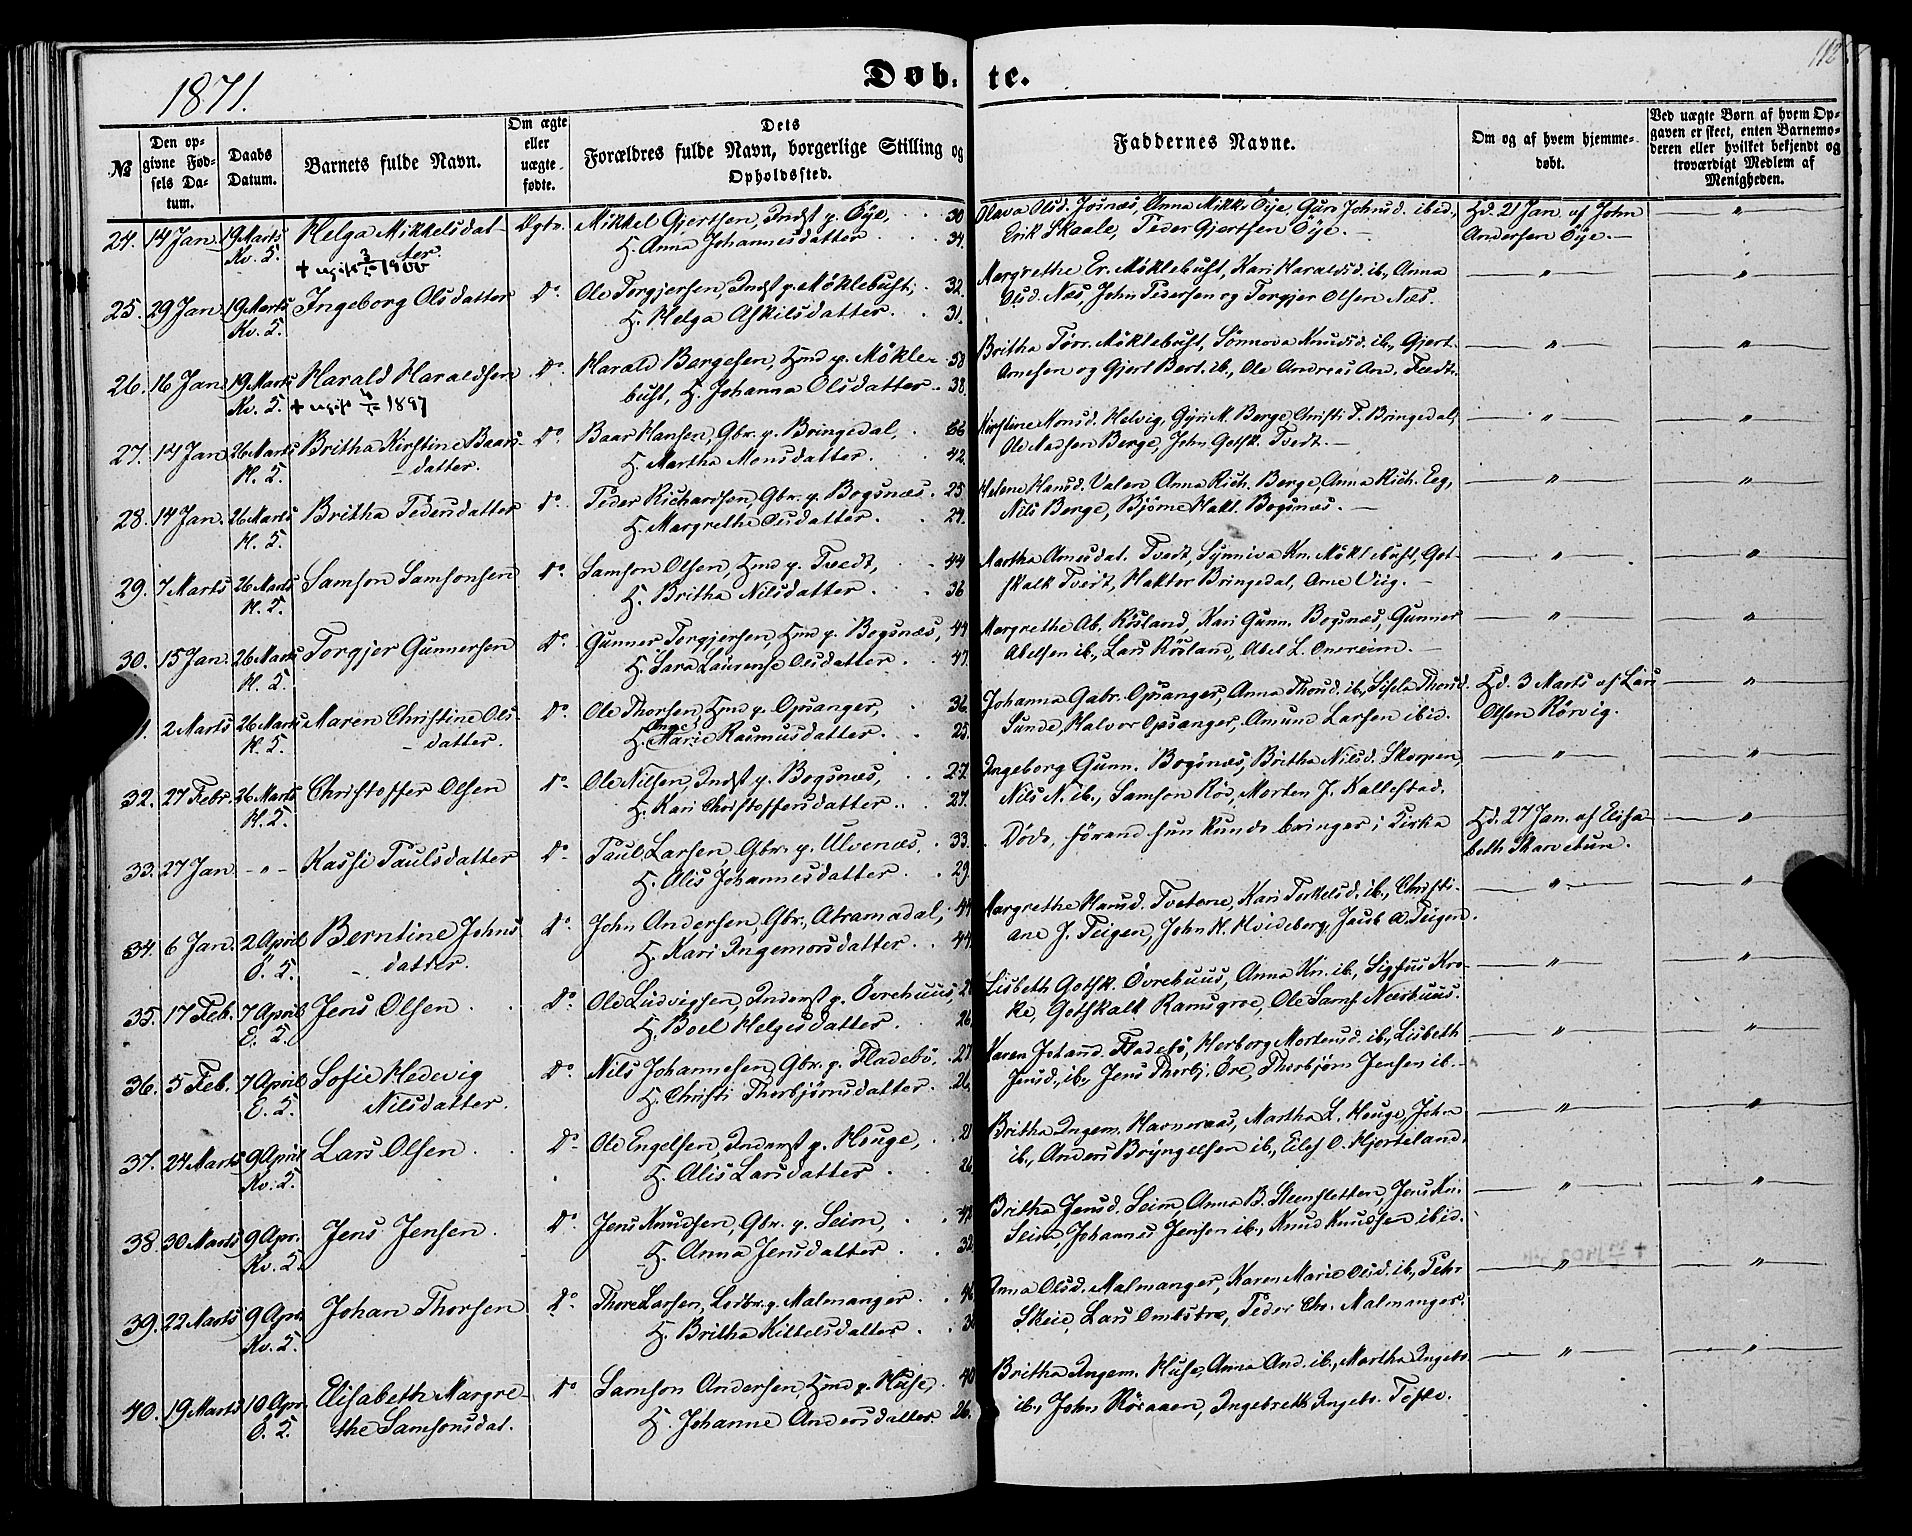 1871.
Døb-te.
112
№
Den opgivne Fødsels Datum.
Daabs Datum.
Barnets fulde Navn.
Om ægte eller uægte fødte.
Dets Forældres fulde Navn, borgerlige Stilling og Opholdssted.
Faddernes Navne.
Om og af hvem hjemmedøbt.
Ved uægte Børn af hvem Opgaven er skeet, enten Barnemoderen eller hvilket bekjendt og troværdigt Medlem af Menigheden.
24. 14 Jan. 19 Marts Kv. S. Helga Mikkelsdatter. Ægte. Mikkel Gjertsen, Indst p. Øye, 30
H. Anna Johannesdatter 34.
Olava Olsd. Josnæs, Anna Mikk. Øye, Guro Johnsd. ibid.,
Erik Skaale, Peder Gjertsen Øye. —
Hd. 21 Jan. af John
Andersen Øye. — "
+ ugift 3/5 1900
25. 29 Jan. 19 Marts Kv. S. Ingeborg Olsdatter Do. Ole Torgjersen, Indst p. Møklebust, 32.
H. Helga Askilsdatter. 31.
Margrethe Er. Møklebust, Kari Haraldsd. ib., Anna
Olsd. Næs, John Pedersen og Torgjer Olsen Næs. " "
26. 16 Jan. 19 Marts Kv. S. Harald Haraldsen Do. Harald Bergesen, Hmd p. Møkle- 58
bust, H. Johanna Olsdatter. 38.
Britha Torr. Møklebust, Sønnova Knudsd. ib., Gjert
Arnesen og Gjert Bert. ib., Ole Andreas And. Tvedt. " "
+ ugift 1897
27. 14 Jan. 26 Marts M. S. Britha Kirstine Baars-
datter. Do. Baar Hansen, Gbr. p. Bringedal, 36
H. Martha Monsdatter. 42.
Kirstine Monsd. Helvig, Gyri M. Berge, Christi T. Bringedal,
Ole Madsen Berge, John Gotsk. Tvedt. — " "
28. 14 Jan. 26 Marts M. S. Britha Pedersdatter Do. Peder Richardsen, Gbr. p. Bogsnæs. 25
H. Margrethe Olsdatter. 24.
Helene Hansd. Valen, Anna Rich. Berge, Anna Rich. Eeg,
Nils Berge, Bjørne Hakt. Bogsnæs. — " "
29. 7 Marts 26 Marts M. S. Samson Samsonsen Do. Samson Olsen, Hmd p. Tvedt, 44
H. Britha Nilsdatter. 36
Martha Arnesdat. Tvedt, Synniva Kn. Møklebust, Got-
skalk Tvedt, Haktor Bringedal, Arne Viig. — " "
30. 15 Jan. 26 Marts M. S. Torgjer Gunnersen Do. Gunner Torgjersen, Hmd p. Bogsnæs, 44
H. Sara Laurense Olsdatter. 47.
Margrethe Ab. Røsland, Kari Gunn. Bogsnæs, Gunner
Abelsen ib., Lars Røsland, Abel L. Omreim. — " "
2 Marts 26 Marts M. S. Maren Christine Ols-
datter. Do. Ole Thorsen, Hmd p. Opsanger, 36.
H. Marie Rasmusdatter. 25.
Johanna Gabr. Opsanger, Anna Thorsd. ib., Sisela Thorsd.
Sunde, Halvor Opsanger, Amund Larsen ibid.
Hd. 3 Marts af Lars
Olsen Rørvig. "
32. 27 Febr. 26 Marts M. S. Christoffer Olsen Do. Ole Nilsen, Indst p. Bogsnæs, 27.
H. Kari Christoffersdatter. 27.
Ingeborg Gunn. Bogsnæs, Britha Nilsd. Skorpen,
Nils N. ib., Samson Rød, Morten J. Kallestad. " "
33. 27 Jan. — " — Kassi Paulsdatter Do. Paul Larsen, Gbr. p. Ulvenæs. 33.
H. Alis Johannesdatter. 29.
Døde, førend hun kunde bringes i Kirke
Hd. 27 Jan. af Elisa-
beth Skarvetun. "
34. 6 Jan. 2 April P. S. Berntine Johns-
datter. Do. John Andersen, Gbr., Atramadal, 44
H. Kari Ingemorsdatter. 44.
Margrethe Hansd. Tvetene, Kari Terkelsd. ib., Christi-
ane J. Teigen, John H. Hvideberg, Jacob A. Teigen. " "
35. 17 Feb. 7 April E. S. Jens Olsen. Do. Ole Ludvigsen, Inderst p. Øvrehuus,
H. Boel Helgesdatter. 26.
Lisbeth Gotsk. Øvrehuus, Anna Kn. ib., Sigfus Kro-
ke, Gotskalk Ramsgroe, Ole Sams. Neerhuus. " "
36. 5 Feb. 7 April E. S. Sofie Hedevig
Nilsdatter. Do. Nils Johannesen, Gbr. p. Fladebø. 27.
H. Christi Thorbjørnsdatter. 26.
Karen Johannd. Fladebø, Herborg Mortensd. ib., Lisbeth
Jensd. ib., Jens Thorbj. Øre, Thorbjørn Jensen ib. — " "
37. 24 Marts 9 April Kv. S. Lars Olsen. Do. Ole Engelsen, Inderst p. Houge, 21
H. Alis Larsdatter 26
Britha Ingem. Havneraas, Martha L. Houge, John
ib., Anders Brynjelsen ib., Eilef O. Hjorteland. " "
38. 30 Marts 9 Apr. Kv. S. Jens Jensen. Do. Jens Knudsen, Gbr. p. Seim, 42
H. Anna Jensdatter. 32
Britha Jensd. Seim, Anna B. Steensletten, Jens Kn.
Seim, Johannes Jensen ib., Knud Knudsen ibid. " "
39. 22 Marts 9 Apr. Kv. S. Johan Thorsen Do. Thore Larsen, Ledbr. p. Malmanger. 46
H. Britha Kittelsdatter.
Anna Olsd. Malmanger, Karen Marie Olsd. ib., Pehr
Skeie, Lars Ombstre, Peder Chr. Malmanger. " "
40. 19 Marts 10 Apr. P. S. Elisabeth Margre-
the Samsonsdat. Do. Samson Andersen, Hmd p. Huse, 40
H. Johanne Andersdatter 26.
Britha Ingem. Huse, Anna And. ib., Martha Ingebr.
ib., John Røraaen, Ingebrekt Ingebr. Tofte. " "